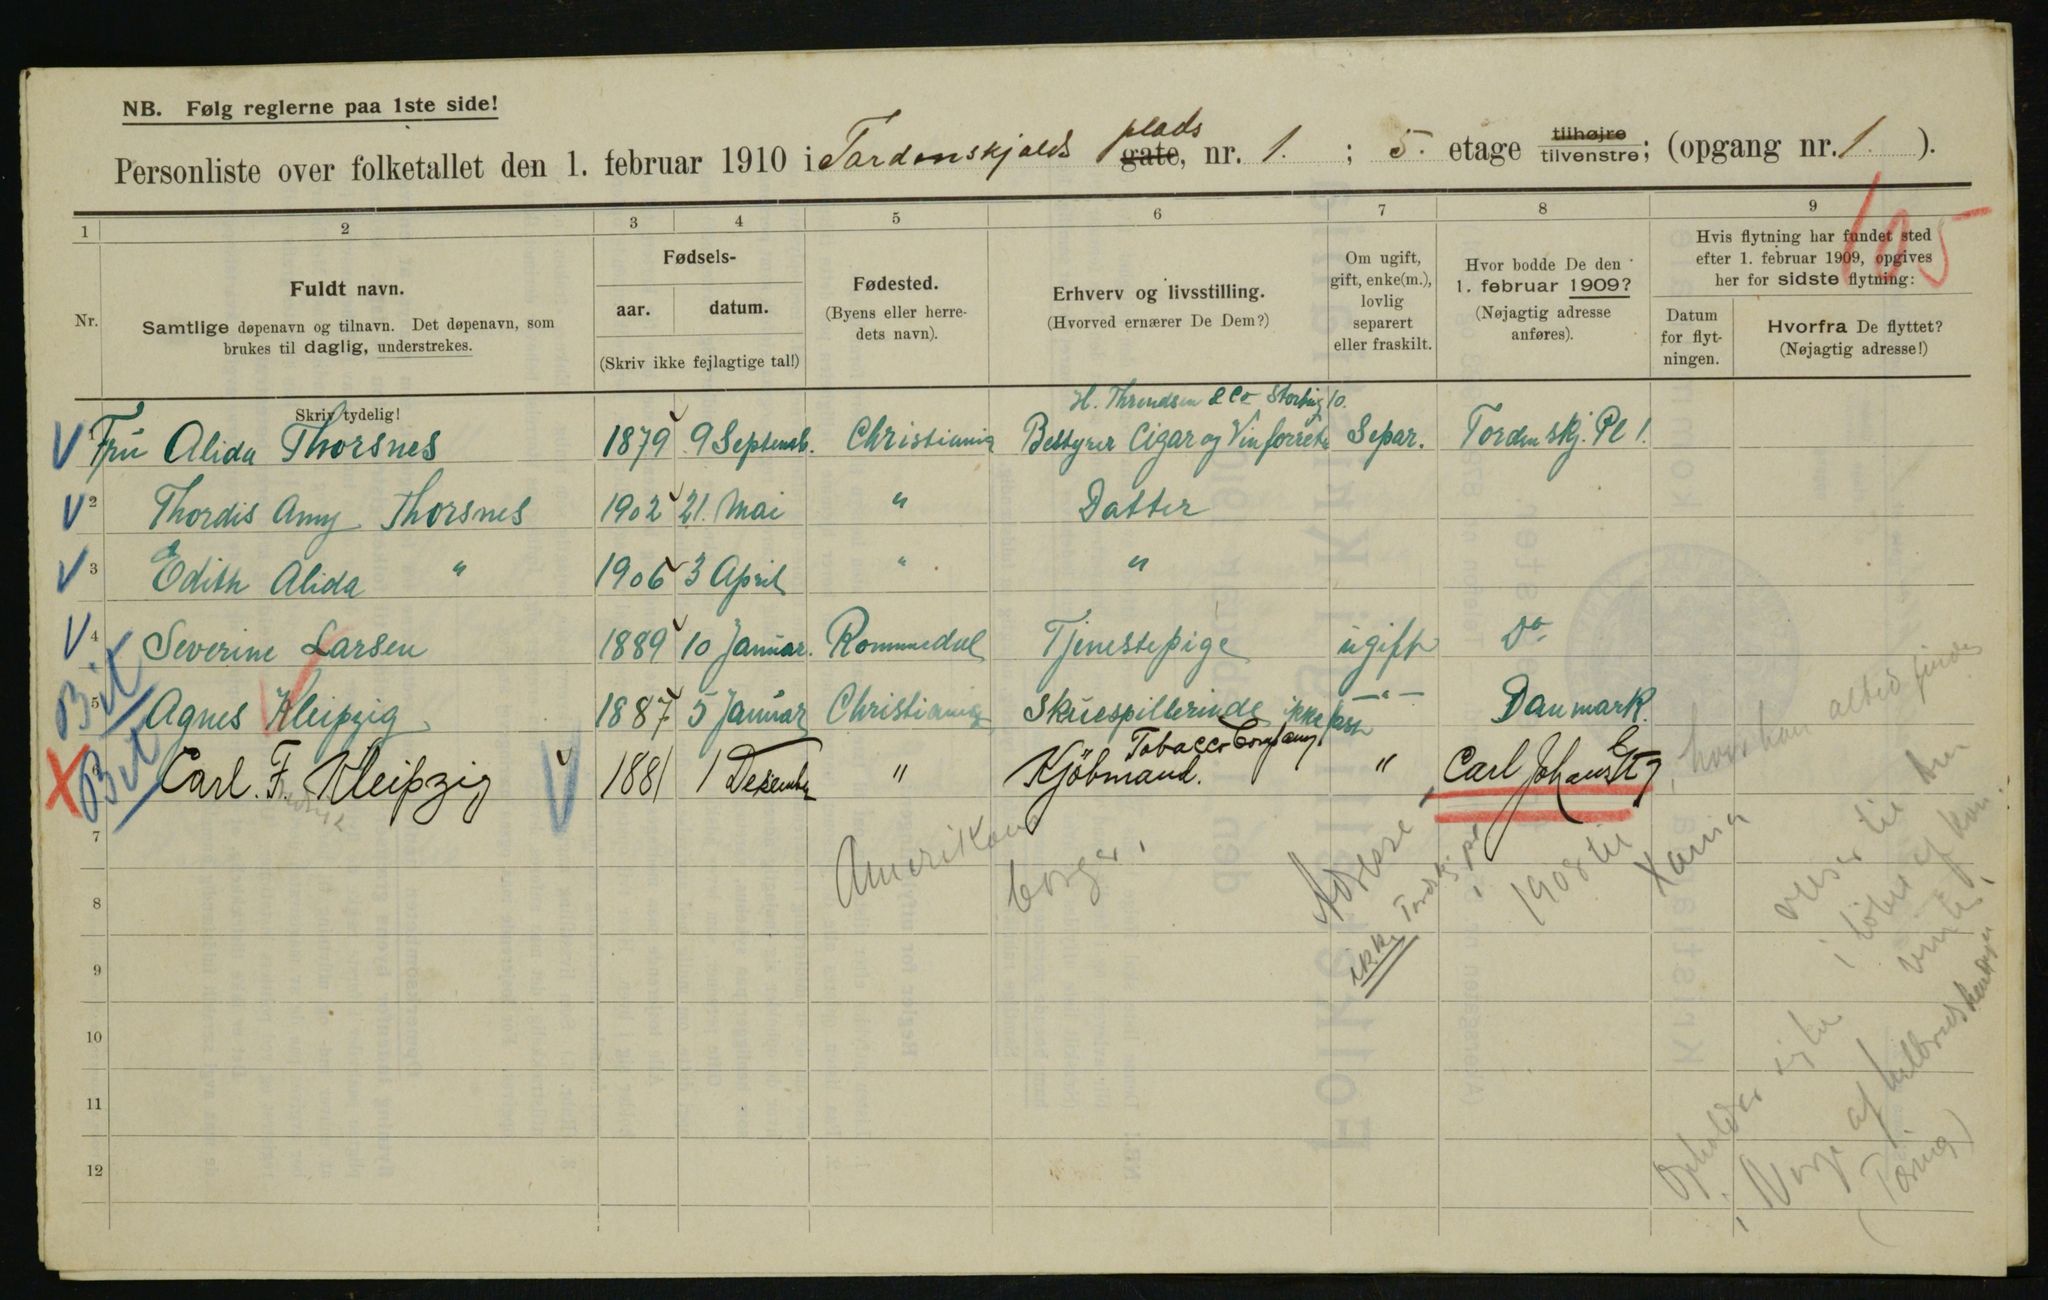 NB. Følg reglerne paa 1ste side!
Personliste over folketallet den 1. februar 1910 i Tordenskjolds plads gate, nr. 1. ; 5. etage tilhøjre tilvenstre; (opgang nr. 1. ).
105
1 2 3 4 5 6 7 8 9
Nr.
Fuldt navn.
Samtlige døpenavn og tilnavn. Det døpenavn, som
brukes til daglig, understrekes.
Fødsels-
aar. datum.
(Skriv ikke fejlagtige tal!)
Fødested.
(Byens eller herre-
dets navn).
Erhverv og livsstilling.
(Hvorved ernærer De Dem?)
Om ugift,
gift, enke(m.),
lovlig
separert
eller fraskilt.
Hvor bodde De den
1. februar 1909?
(Nøjagtig adresse
anføres).
Hvis flytning har fundet sted
efter 1. februar 1909, opgives
her for sidste flytning:
Datum
for flyt-
ningen.
Hvorfra De flyttet?
(Nøjagtig adresse!)
Skriv tydelig!
H. Throndsen & Co Storting 10.
1 Fru Alida Thorsnes 1879 9 Septemb. Christiania Bestyrer Cigar og Vinforretn Separ. Tordenskj. Pl 1.
2 Thordis Amy Thorsnes 1902 21. Mai " Datter
3 Edith Alida " 1906 3 April " "
4 Severine Larsen 1889 10 Januar. Rommedal Tjenestepige ugift Do
Bil 5 Agnes Kleipzig 1887 5 Januar Christiania Skuespillerinde ikke fast —"— Danmark.
Tobacco Company.
Bil 6 Carl. F. Kleipzig 1881 1 Desember " Kjöbmand. " Carl Johans Gt
7
Amerikansk
borger.
8
Adresse
ikke Tordskj. pl
1908 til
Xania
, hvor han altid findes
9
10
11
12
Opholder sig
i Norge af helbredshensyn